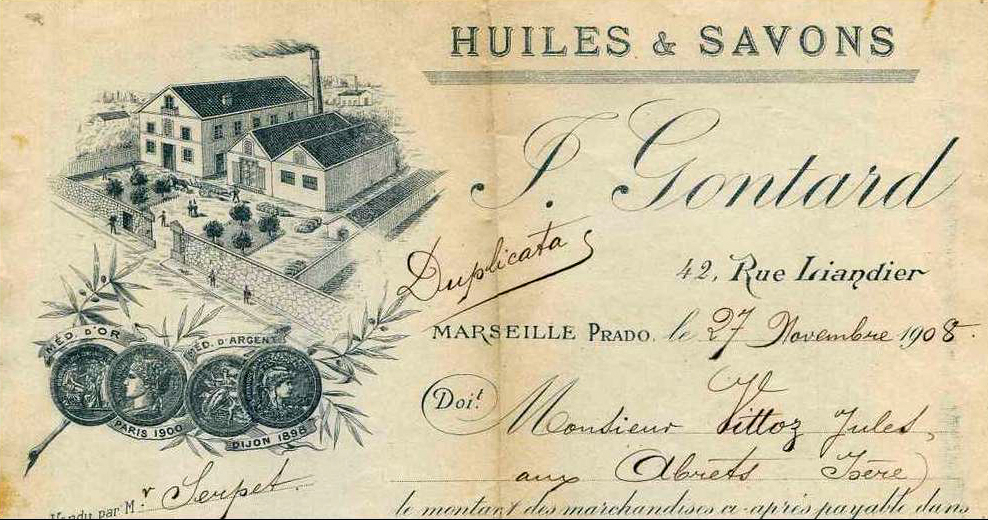 HUILES & SAVONS
J. Gontard
Duplicata
42, Rue Liandier
MARSEILLE PRADO, le 27 Novembre 1908.
Doit Monsieur Vittoz Jules,
aux Abrets Isère)
le montant des marchandises ci-après payable dans
MÉD. D'OR
MÉD. D'ARGENT
PARIS 1900
DIJON 1898
Vendu par Mr Serpet.